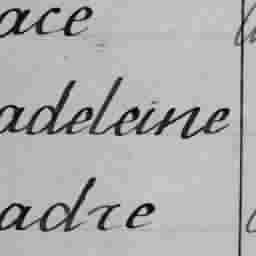 ace
adeleine
adre